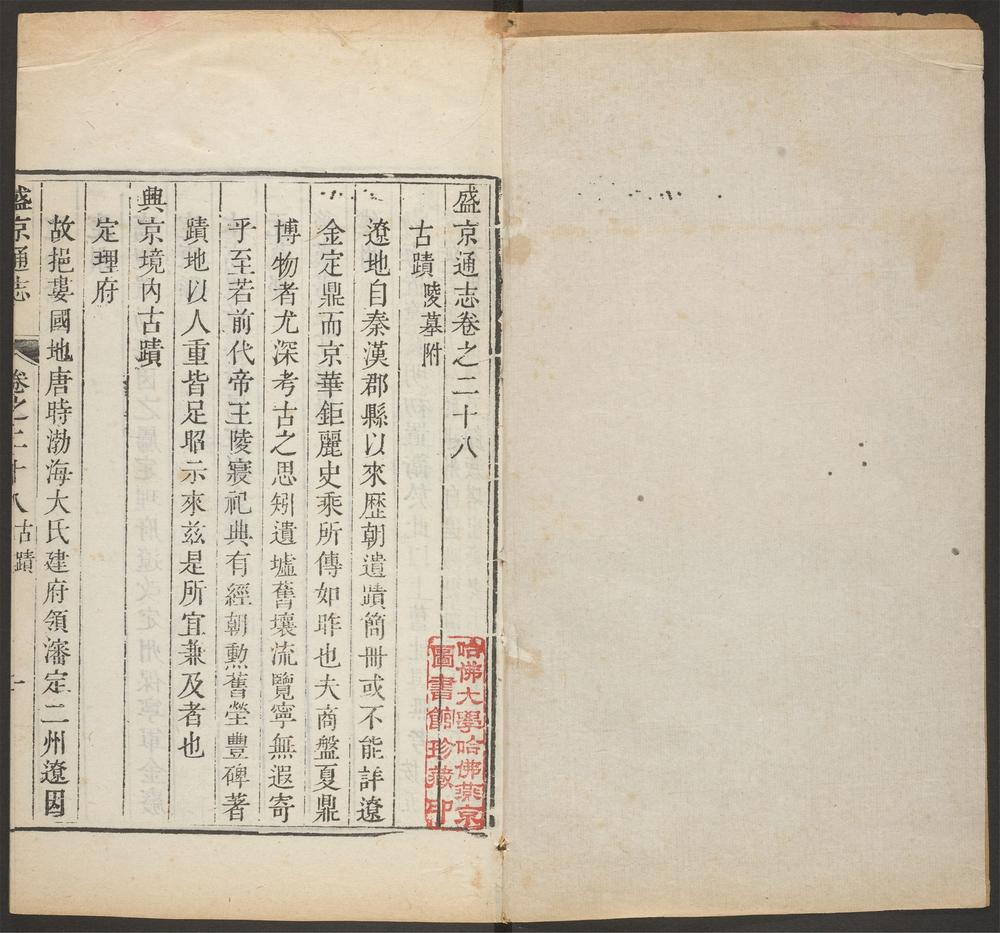 盛京通志卷之二十八
古蹟 陵墓附
遼地自秦漢郡縣以來歷朝遺蹟簡冊或不能詳遼
金定鼎而京華鉅麗史乘所傳如昨也夫商盤夏鼎
博物者尤深考古之思矧遺墟舊壤流覽寧無遐寄
乎至若前代帝王陵寢祀典有經朝勲舊塋豐碑著
蹟地以人重皆足昭示來兹是所宜兼及者也
興京境內古蹟
定理府
故挹婁國地唐時渤海大氏建府領瀋定二州遼因
盛京通志 卷之二十八 古蹟 一
哈佛大學哈佛燕京
圖書館珍藏印